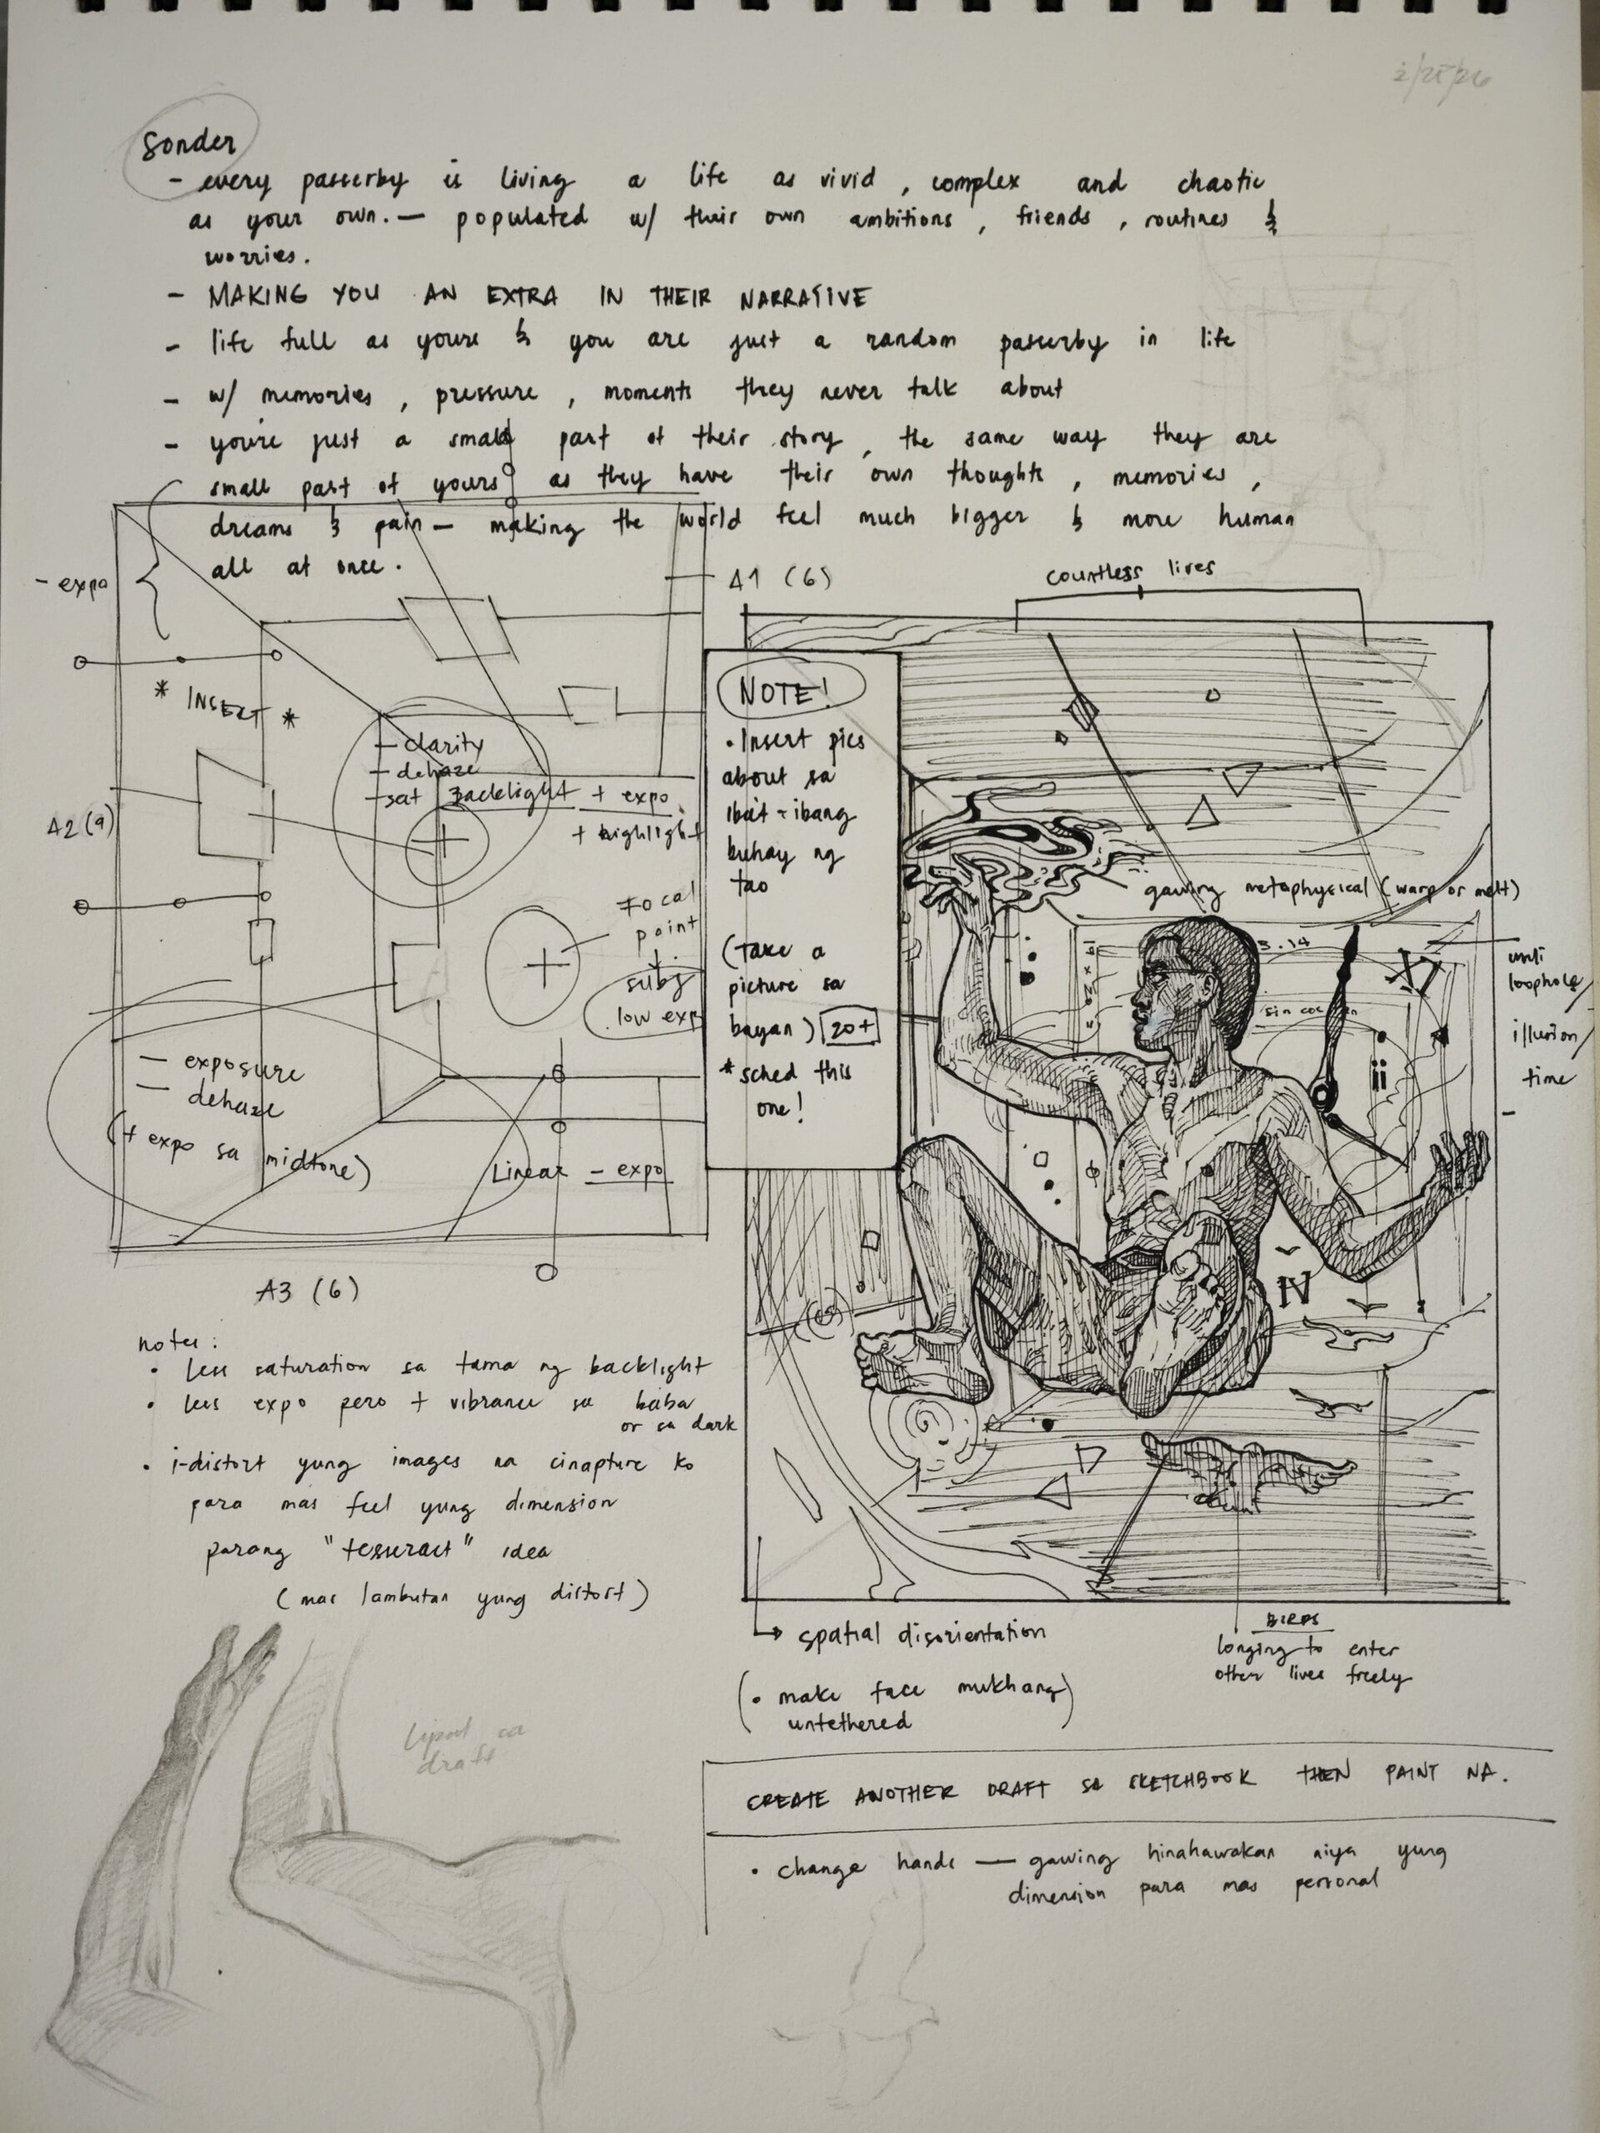 2/25/26
Sonder
- every passerby is living a life as vivid, complex and chaotic
as your own. — populated w/ their own ambitions, friends, routines &
worries.
- MAKING YOU AN EXTRA IN THEIR NARRATIVE
- life full as yours & you are just a random passerby in life
- w/ memories, pressure, moments they never talk about
- you're just a small part of their story, the same way they are
small part of yours as they have their own thoughts, memories,
dreams & pain — making the world feel much bigger & more human
all at once.
- expo
* INSERT *
A2 (9)
- clarity
- dehaze
- sat
Backlight + expo
+ highlight
Focal
point
subj
low exp
- exposure
- dehaze
(+ expo sa midtone)
Linear - expo
A3 (6)
A1 (6)
countless lives
NOTE!
• Insert pics
about sa
ibat-ibang
buhay ng
tao
(Take a
picture sa
bayan) 20+
* sched this
one!
gawing metaphysical (warp or melt)
3.14
sin cos
XI
ii
IV
unli
loophole/
illusion/
time
notes:
• less saturation sa tama ng backlight
• less expo pero + vibrance sa baba
or sa dark
• i-distort yung images na cinapture ko
para mas feel yung dimension
parang "tesseract" idea
(mas lambutan yung distort)
spatial disorientation
(• make face mukhang)
untethered
BIRDS
longing to enter
other lives freely
Lipat sa
draft
CREATE ANOTHER DRAFT SA SKETCHBOOK THEN PAINT NA.
• change hands — gawing hinahawakan niya yung
dimension para mas personal